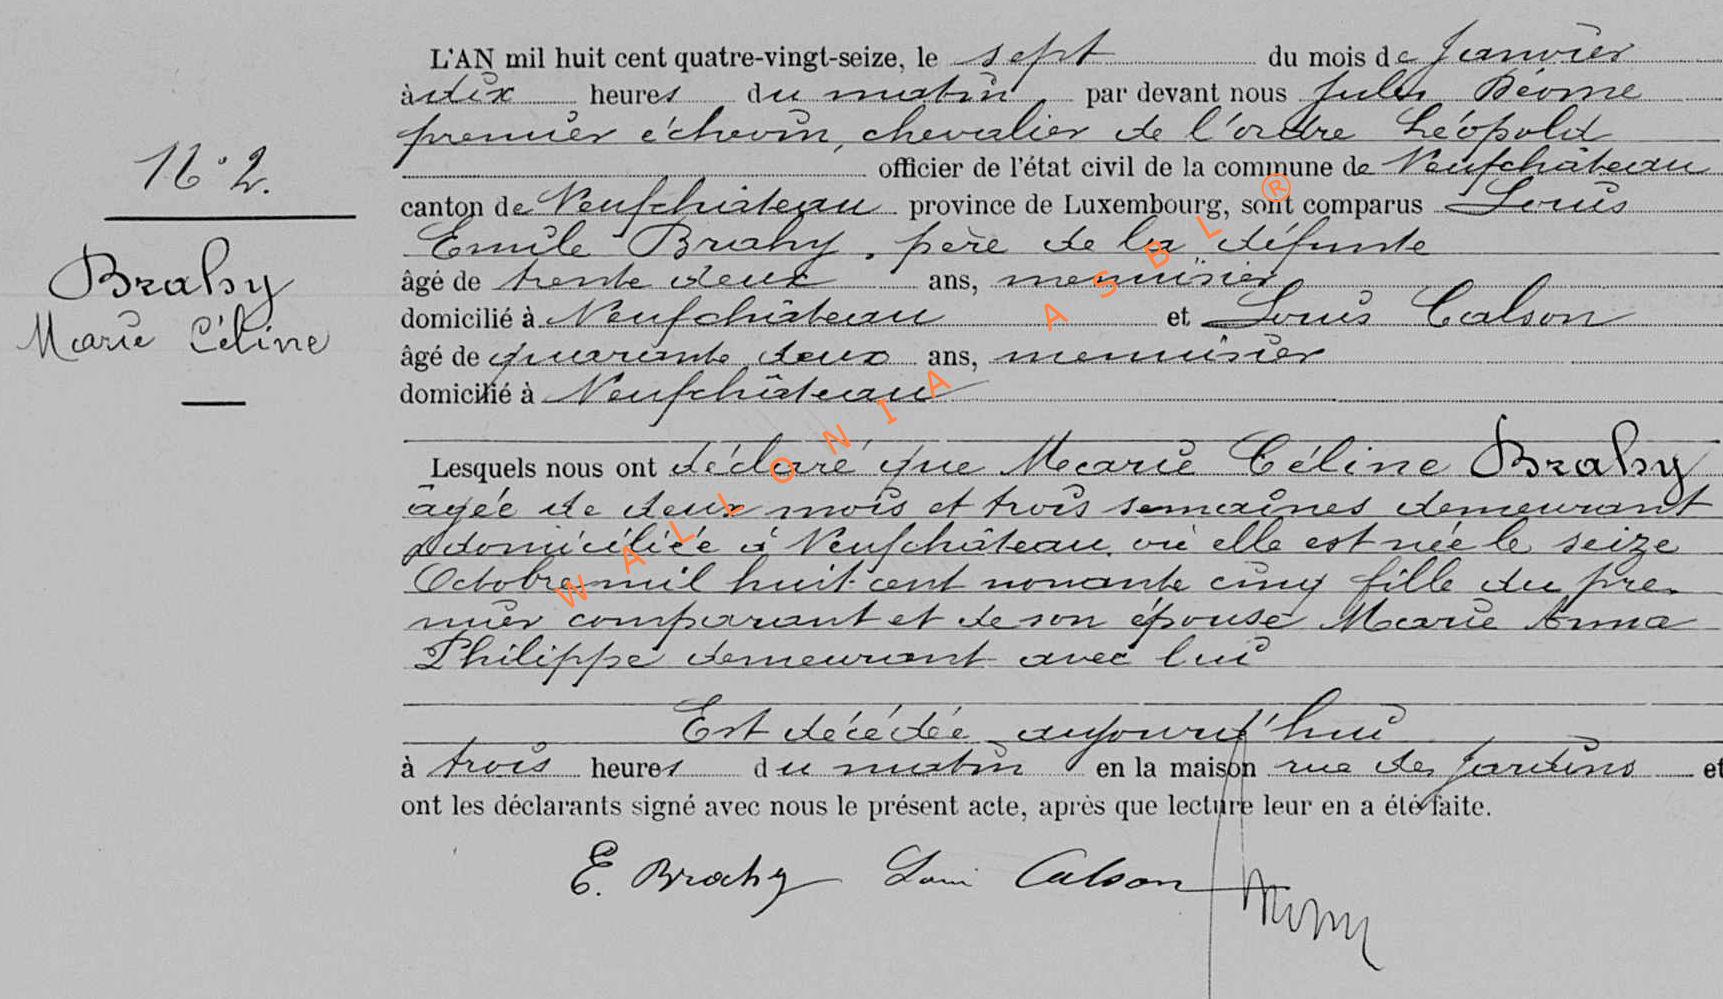 N° 2.
Brahy
Marie Céline
L'AN mil huit cent quatre-vingt-seize, le sept du mois de Janvier
à dix heures du matin par devant nous Jules Déome
premier échevin, chevalier de l'ordre Léopold
officier de l'état civil de la commune de Neufchâteau
canton de Neufchâteau province de Luxembourg, sont comparus Louis
Emile Brahy, père de la défunte
âgé de trente deux ans, menuisier
domicilié à Neufchâteau et Louis Calson
âgé de quarante deux ans, menuisier
domicilié à Neufchâteau
Lesquels nous ont déclaré que Marie Céline Brahy
âgée de deux mois et trois semaines demeurant
domiciliée à Neufchâteau, où elle est née le seize
Octobre mil huit cent nonante cinq fille du pre-
mier comparant et de son épouse Marie Anna
Philippe demeurant avec lui
Est décédée aujourd'hui
à trois heures du matin en la maison rue des Jardins et
ont les déclarants signé avec nous le présent acte, après que lecture leur en a été faite.
E. Brahy Louis Calson
WALLONIA ASBL ®